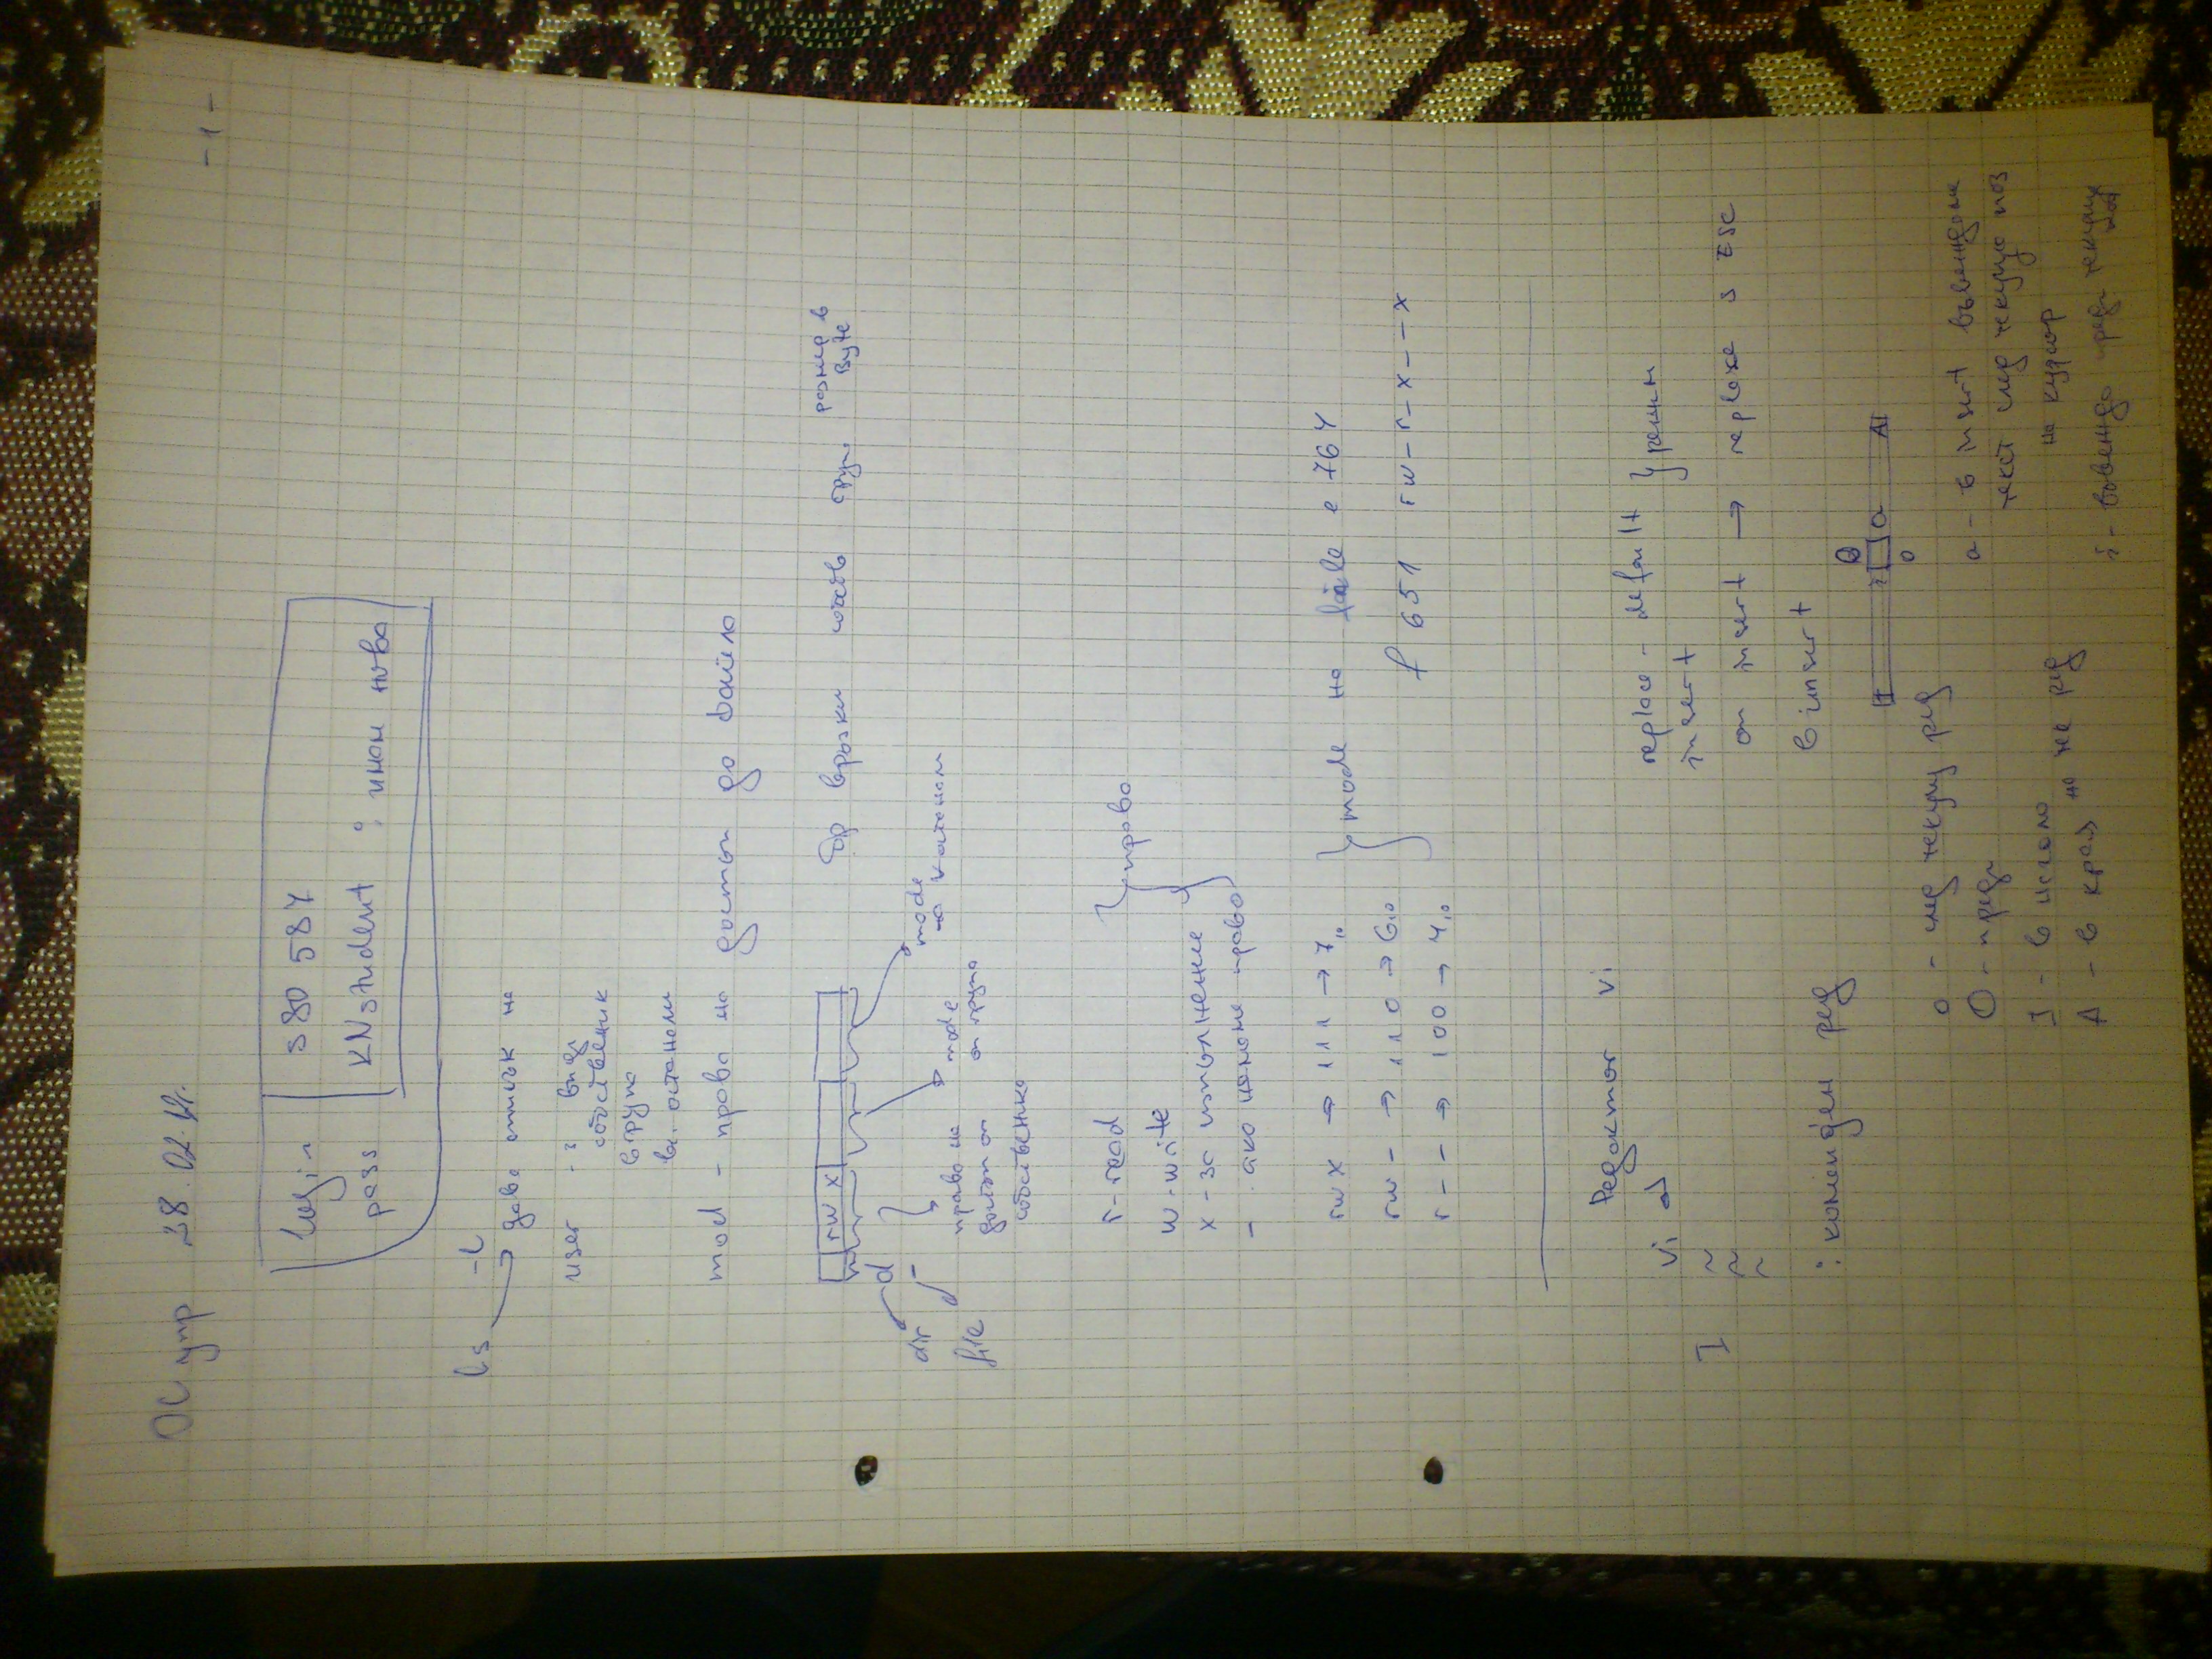 -1-
ОС упр 28.02.11г.
login s80587
pass KNstudent ; имам нова
ls -l
дава списък на
user - вид
собственик
група
останали
mod - права на достъп до файла
rwx
бр връзки собств груп. размер в Byte
dir d
file -
права на достъп от собственика
mode от група
mode на останали
r - read
w - write
x - за изпълнение
- ако нямаме право
} право
rwx → 111 → 7₁₀
rw- → 110 → 6₁₀
r-- → 100 → 4₁₀
} mode на file е 764
651 rw-r-x--x
Редактор vi
vi
~
~
~
I
replace - default } режим
insert
от insert → replace s ESC
в insert
: команден ред
I i O a A
o
o - след текущ ред
O - пред
I - в начало
A - в края на ред
a - в insert въвеждаме
текст след текущо поз
на курсор
i - въвежда пред текущ